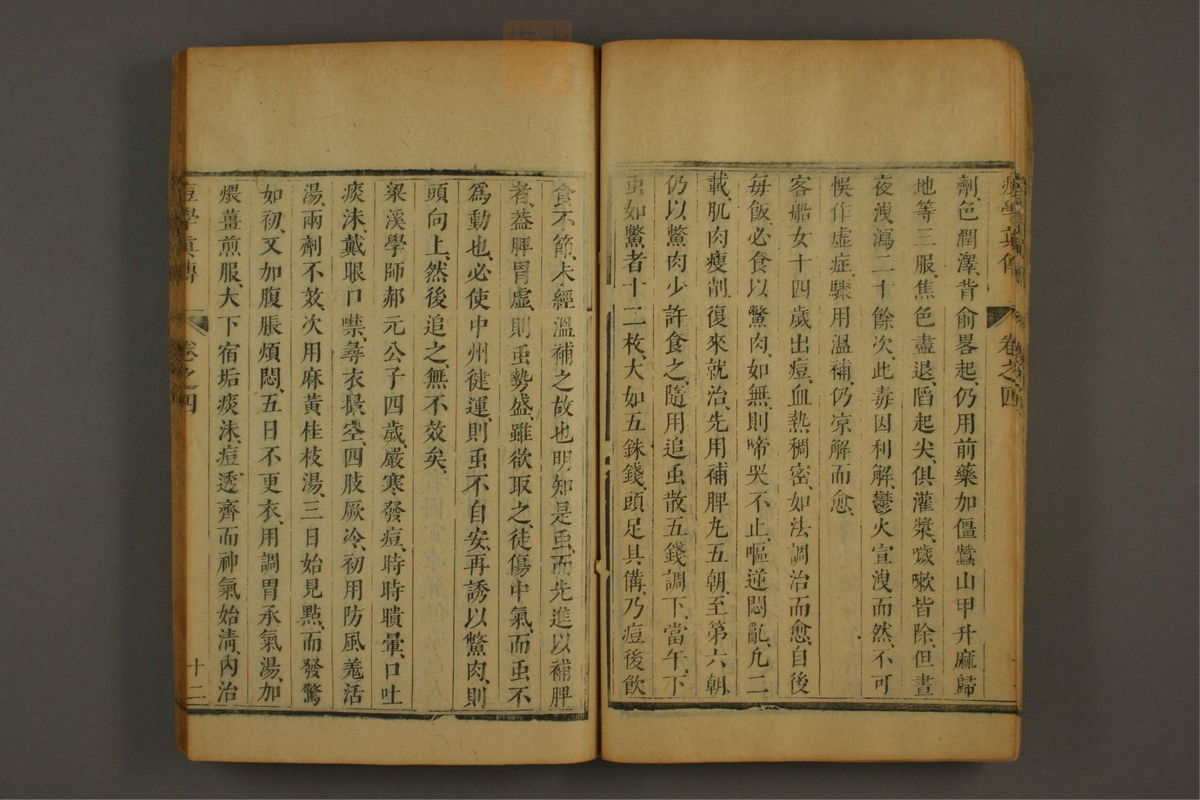 劑色潤澤背俞畧起仍用前藥加僵蠶山甲升麻歸
地等三服焦色盡退䧟起尖俱灌漿咳嗽皆除但晝
夜洩瀉二十餘次此毒因利解鬱火宣洩而然不可
悞作虛症驟用溫補仍凉解而愈
客船女十四歲出痘血熱稠密如法調治而愈自後
每飯必食以鱉肉如無則啼哭不止嘔逆悶亂九二
載肌肉瘦削復來就治先用補脾丸五朝至第六朝
仍以鱉肉少許食之隨用追䖝散五錢調下當午下
䖝如鱉者十二枚大如五銖錢頭足具備乃痘後飲
卷之四
食不節未經溫補之故也明知是䖝而先進以補脾
者葢脾胃虛則䖝勢盛雖欲取之徒傷中氣而䖝不
爲動也必使中州健運則䖝不自安再誘以鱉肉則
頭向上然後追之無不效矣
梁溪學師郝元公子四歲嚴寒發痘時時瞶暈口吐
痰沫戴眼口噤尋衣撮空四肢厥冷初用防風羗活
湯兩劑不效次用麻黃桂枝湯三日始見㸃而發驚
如初又加腹脹煩悶五日不更衣用調胃承氣湯加
煨薑煎服大下宿垢痰沫痘透齊而神氣始淸內治
痘學真傳 卷之四 十二